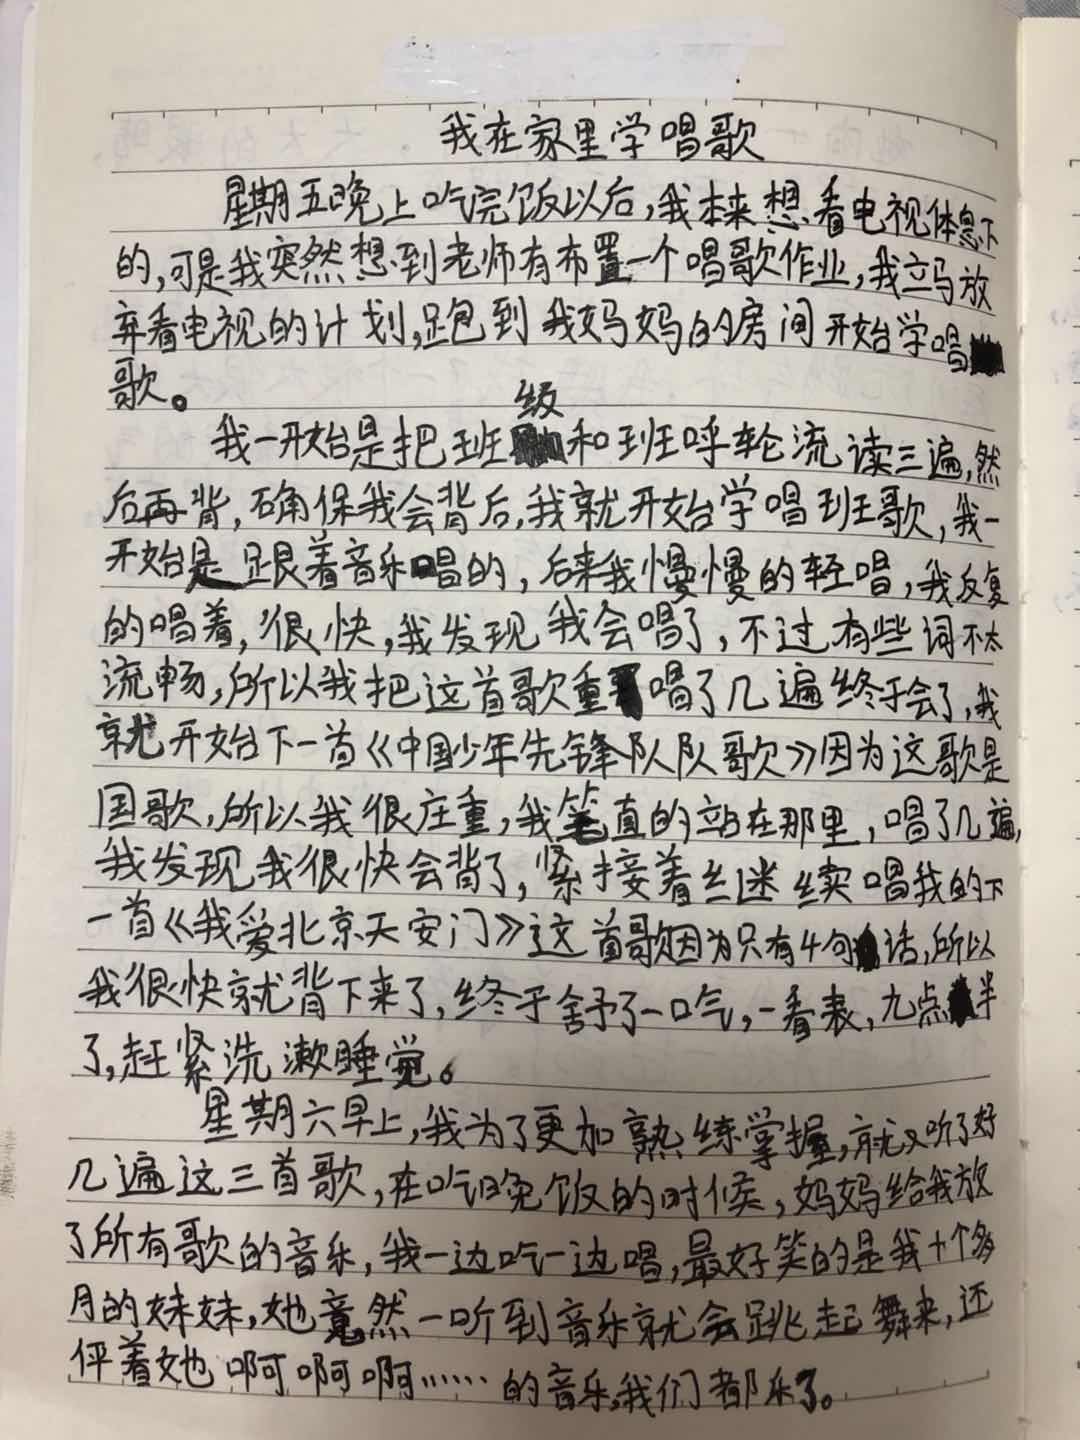 我在家里学唱歌
星期五晚上吃完饭以后,我本来想看电视休息下
的,可是我突然想到老师有布置一个唱歌作业,我立马放
弃看电视的计划,跑到我妈妈的房间开始学唱
歌。
我一开始是把班级和班呼轮流读三遍,然
后再背,确保我会背后,我就开始学唱班歌,我一
开始是跟着音乐唱的,后来我慢慢的轻唱,我反复
的唱着,很快,我发现我会唱了,不过有些词不太
流畅,所以我把这首歌重唱了几遍终于会了,我
就开始下一首《中国少年先锋队队歌》因为这歌是
国歌,所以我很庄重,我笔直的站在那里,唱了几遍,
我发现我很快会背了,紧接着继续唱我的下
一首《我爱北京天安门》这首歌因为只有4句话,所以
我很快就背下来了,终于舒了一口气,一看表,九点半
了,赶紧洗漱睡觉。
星期六早上,我为了更加熟练掌握,就又听了好
几遍这三首歌,在吃晚饭的时候,妈妈给我放
了所有歌的音乐,我一边吃一边唱,最好笑的是我十个多
月的妹妹,她竟然一听到音乐就会跳起舞来,还
伴着她啊啊啊……的音乐,我们都乐了。